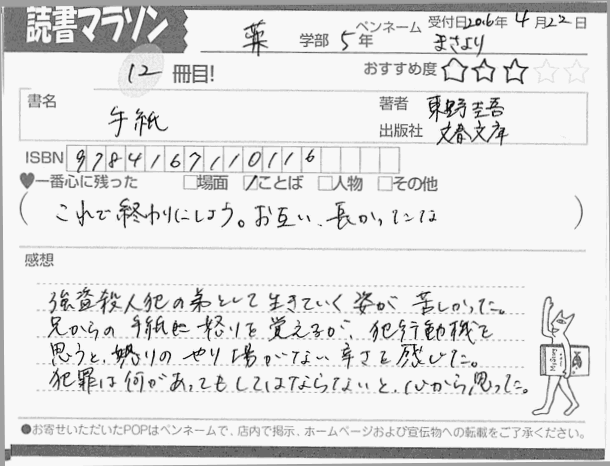 読書マラソン
薬 学部 5年 ペンネーム まさより 受付日2016年 4月22日
12 冊目! おすすめ度 ☆☆☆☆☆
書名 手紙
著者 東野圭吾
出版社 文春文庫
ISBN 9784167110116
♥一番心に残った □場面 ☑ことば □人物 □その他
(これで終わりにしよう。お互い、長かったな)
感想
強盗殺人犯の弟として生きていく姿が苦しかった。
兄からの手紙に怒りを覚えるが、犯行動機を
思うと、怒りのやり場がない辛さを感じた。
犯罪は何があってもしてはならないと、心から思った。
●お寄せいただいたPOPはペンネームで、店内で掲示、ホームページおよび宣伝物への転載をご了承ください。